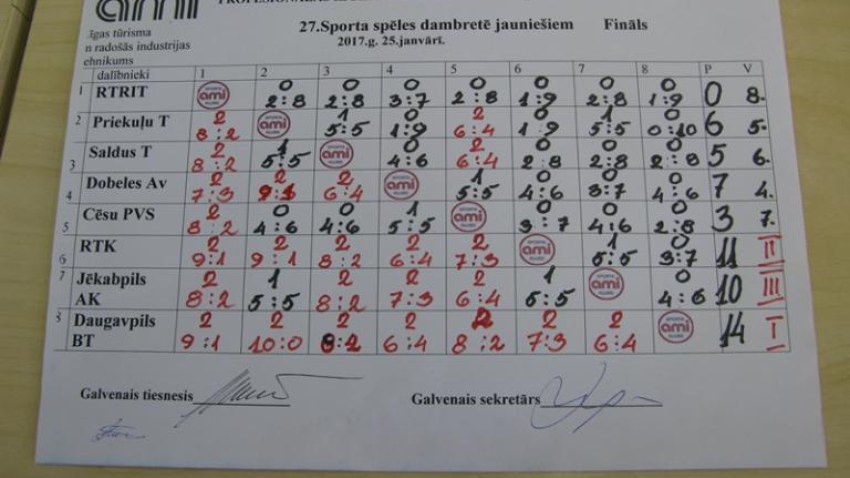 ami
27.Sporta spēles dambretē jauniešiem Fināls
2017.g. 25.janvārī.
īgas tūrisma
n radošās industrijas
ehnikums
dalībnieki 1 2 3 4 5 6 7 8 P V
1 RTRIT ami 0 2:8 0 2:8 0 3:7 0 2:8 0 1:9 0 2:8 0 1:9 0 8.
2 Priekuļu T 2 8:2 ami 1 5:5 0 1:9 2 6:4 0 1:9 1 5:5 0 0:10 6 5.
3 Saldus T 2 8:2 1 5:5 ami 0 4:6 2 6:4 0 2:8 0 2:8 0 2:8 5 6.
4 Dobeles Av 2 7:3 2 9:1 2 6:4 ami 1 5:5 0 4:6 0 3:7 0 4:6 7 4.
5 Cēsu PVS 2 8:2 0 4:6 0 4:6 1 5:5 ami 0 3:7 0 4:6 0 2:8 3 7.
6 RTK 2 9:1 2 9:1 2 8:2 2 6:4 2 7:3 ami 1 5:5 0 3:7 11 II
7 Jēkabpils AK 2 8:2 1 5:5 2 8:2 2 7:3 2 6:4 1 5:5 ami 0 4:6 10 III
8 Daugavpils BT 2 9:1 2 10:0 2 8:2 2 6:4 2 8:2 2 7:3 2 6:4 ami 14 I
Galvenais tiesnesis Galvenais sekretārs